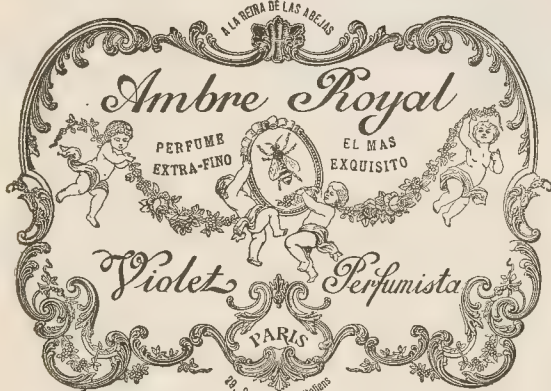 A LA REINA DE LAS ABEJAS
Ambre Royal
PERFUME
EXTRA-FINO
EL MAS
EXQUISITO
Violet Perfumista
PARIS
29,